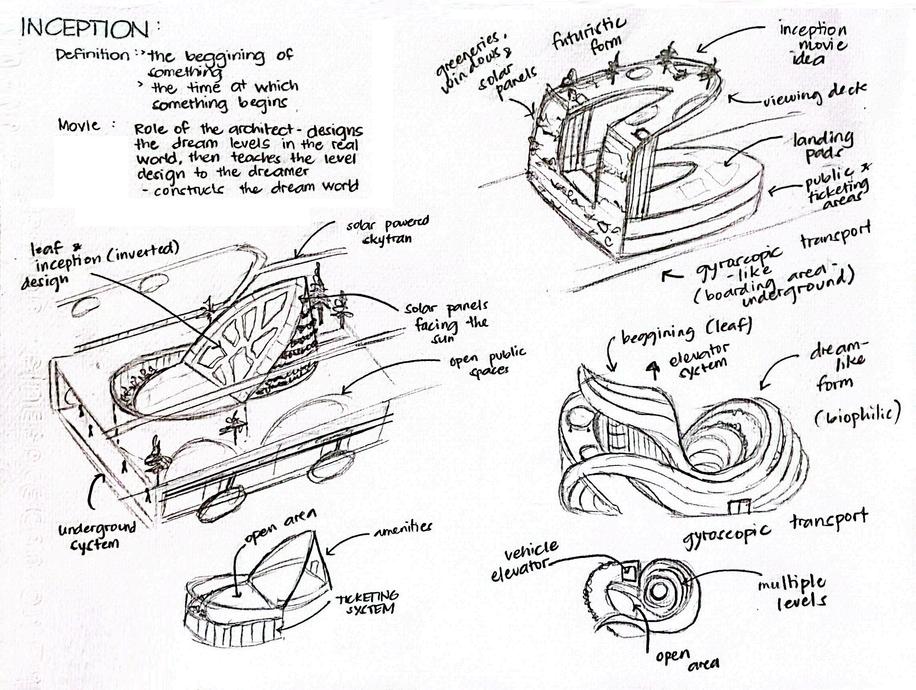 INCEPTION:
Definition :> the beggining of
something
> the time at which
something begins
Movie : Role of the architect - designs
the dream levels in the real
world, then teaches the level
design to the dreamer
- constructs the dream world
greeneries,
windows &
solar
panels
futuristic
form
inception
movie
idea
viewing deck
landing
pads
public &
ticketing
areas
gyroscopic transport
-like
(boarding area -
underground)
leaf &
inception (inverted)
design
solar powered
skytran
solar panels
facing the
sun
open public
spaces
underground
system
open area
amenities
TICKETING
SYSTEM
beggining (leaf)
elevator
system
dream-
like
form
(biophilic)
gyroscopic transport
vehicle
elevator
multiple
levels
open
area